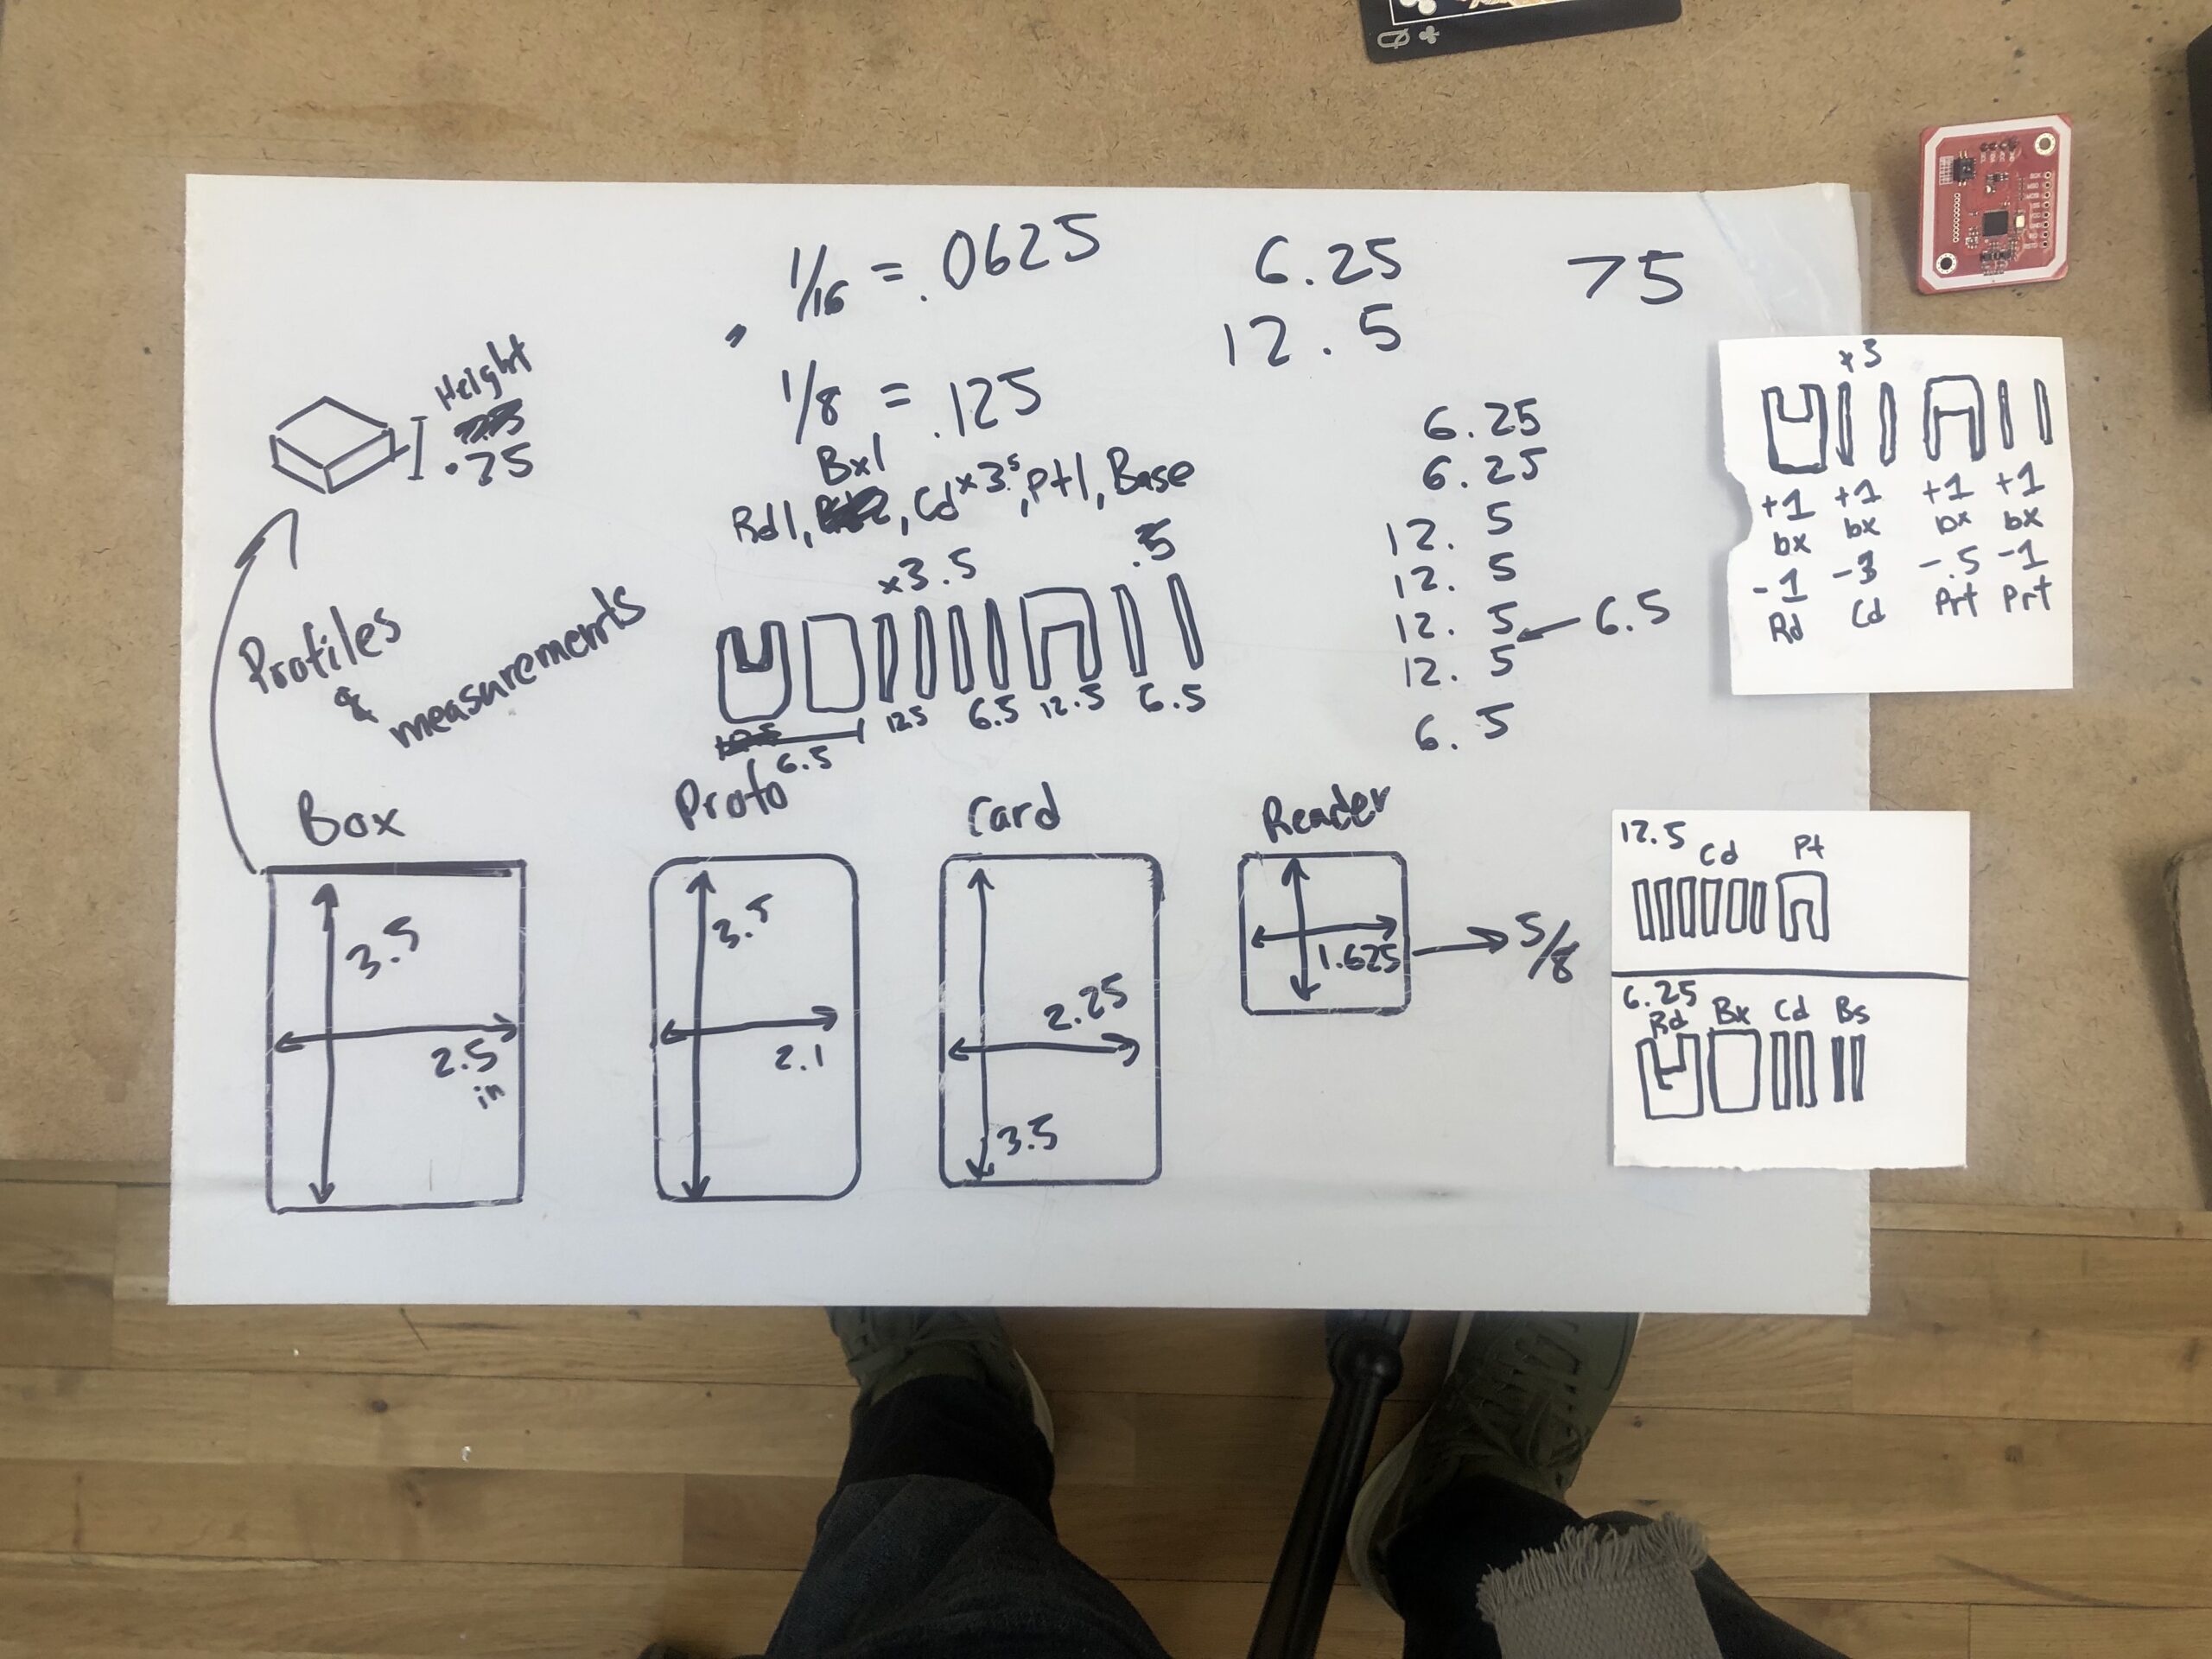 Q
1/16 = .0625
6.25
12.5
75
Height
.75
1/8 = .125
Bx1
Rd1, , Cd x3.5, Pt1, Base
x3.5
.5
12.5
6.5
12.5
6.5
6.5
6.25
6.25
12.5
12.5
12.5
12.5
6.5
6.5
Profiles
&
measurements
Box
3.5
2.5
in
Proto
3.5
2.1
Card
2.25
3.5
Reader
1.625
5/8
x3
+1 +1 +1 +1
bx bx bx bx
-1 -3 -.5 -1
Rd Cd Prt Prt
12.5 Cd Pt
6.25
Rd Bx Cd Bs